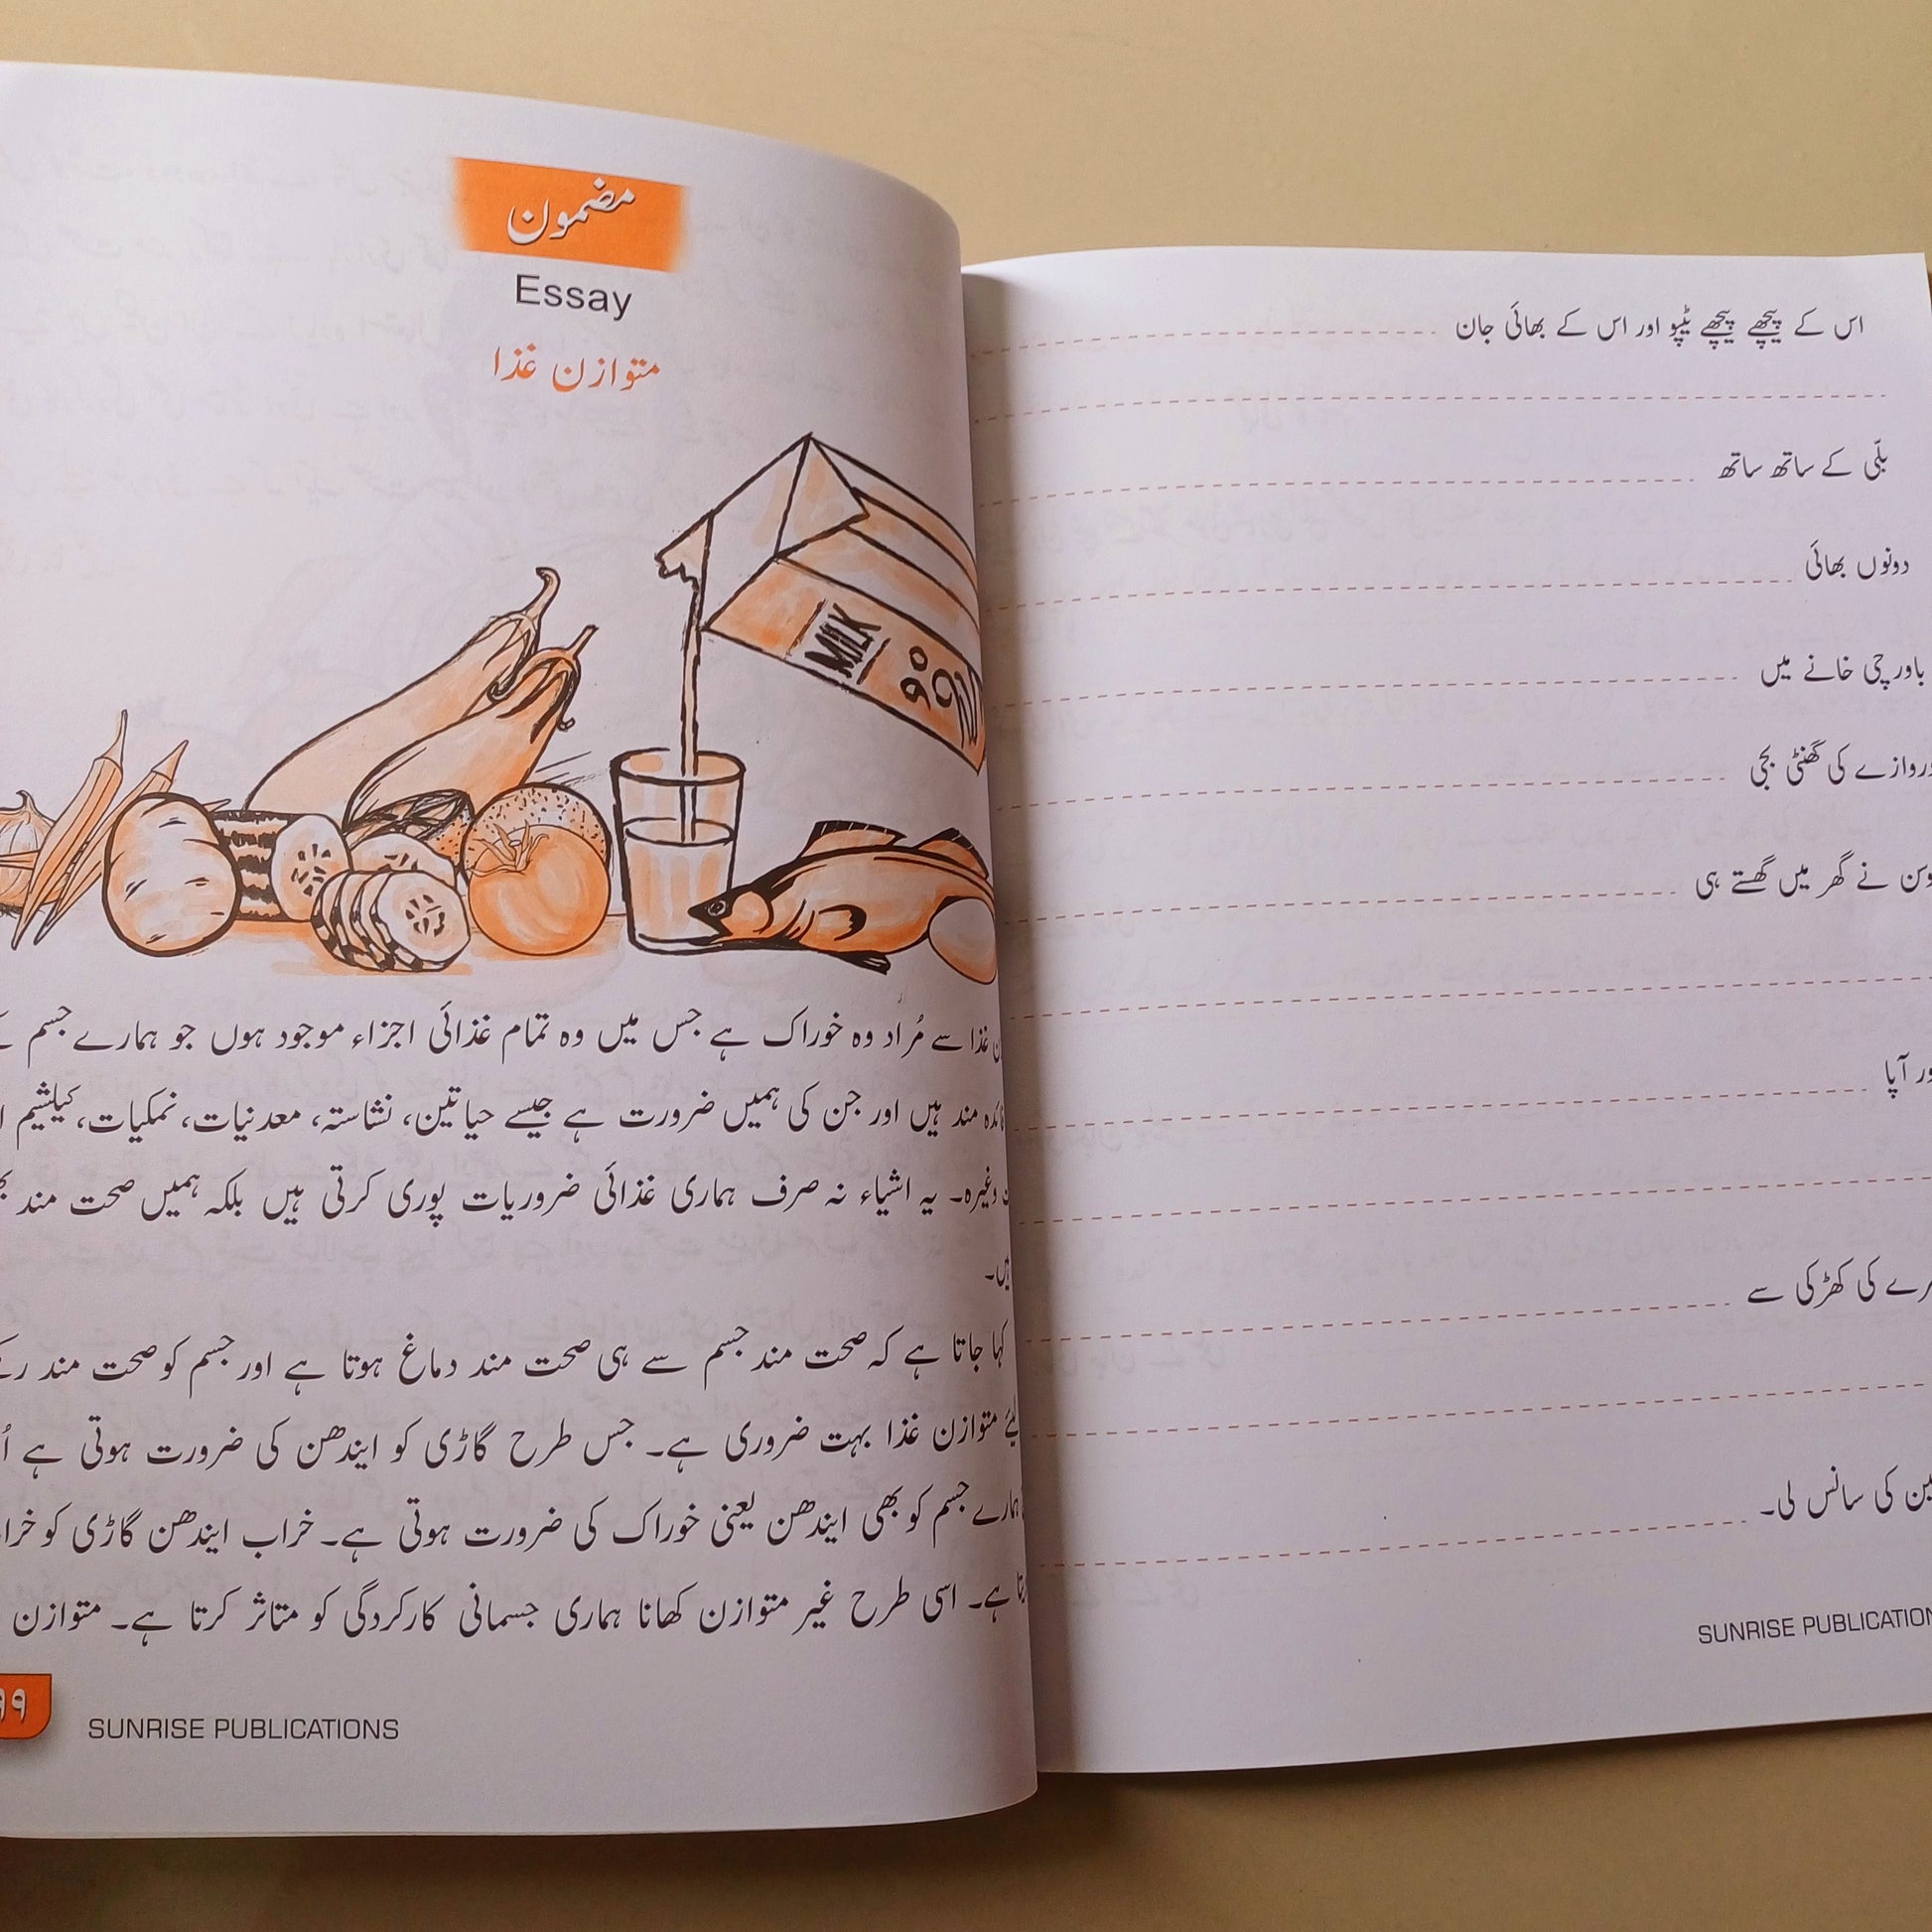 مضمون
Essay
متوازن غذا
MILK
غذا سے مُراد وہ خوراک ہے جس میں وہ تمام غذائی اجزاء موجود ہوں جو ہمارے جسم
مند ہیں اور جن کی ہمیں ضرورت ہے جیسے حیاتین، نشاستہ، معدنیات، نمکیات، کیلشیم
وغیرہ۔ یہ اشیاء نہ صرف ہماری غذائی ضروریات پوری کرتی ہیں بلکہ ہمیں صحت مند
ہیں۔
کہا جاتا ہے کہ صحت مند جسم سے ہی صحت مند دماغ ہوتا ہے اور جسم کو صحت مند
لیئے متوازن غذا بہت ضروری ہے۔ جس طرح گاڑی کو ایندھن کی ضرورت ہوتی ہے
ہمارے جسم کو بھی ایندھن یعنی خوراک کی ضرورت ہوتی ہے۔ خراب ایندھن گاڑی کو
ہے۔ اسی طرح غیر متوازن کھانا ہماری جسمانی کارکردگی کو متاثر کرتا ہے۔ متوازن
SUNRISE PUBLICATIONS
اس کے پیچھے پیچھے ٹیپو اور اس کے بھائی جان
بلّی کے ساتھ ساتھ
دونوں بھائی
باورچی خانے میں
کی گھنٹی بجی
نے گھر میں گھستے ہی
آپا
کی کھڑکی سے
کی سانس لی۔
SUNRISE PUBLICATION